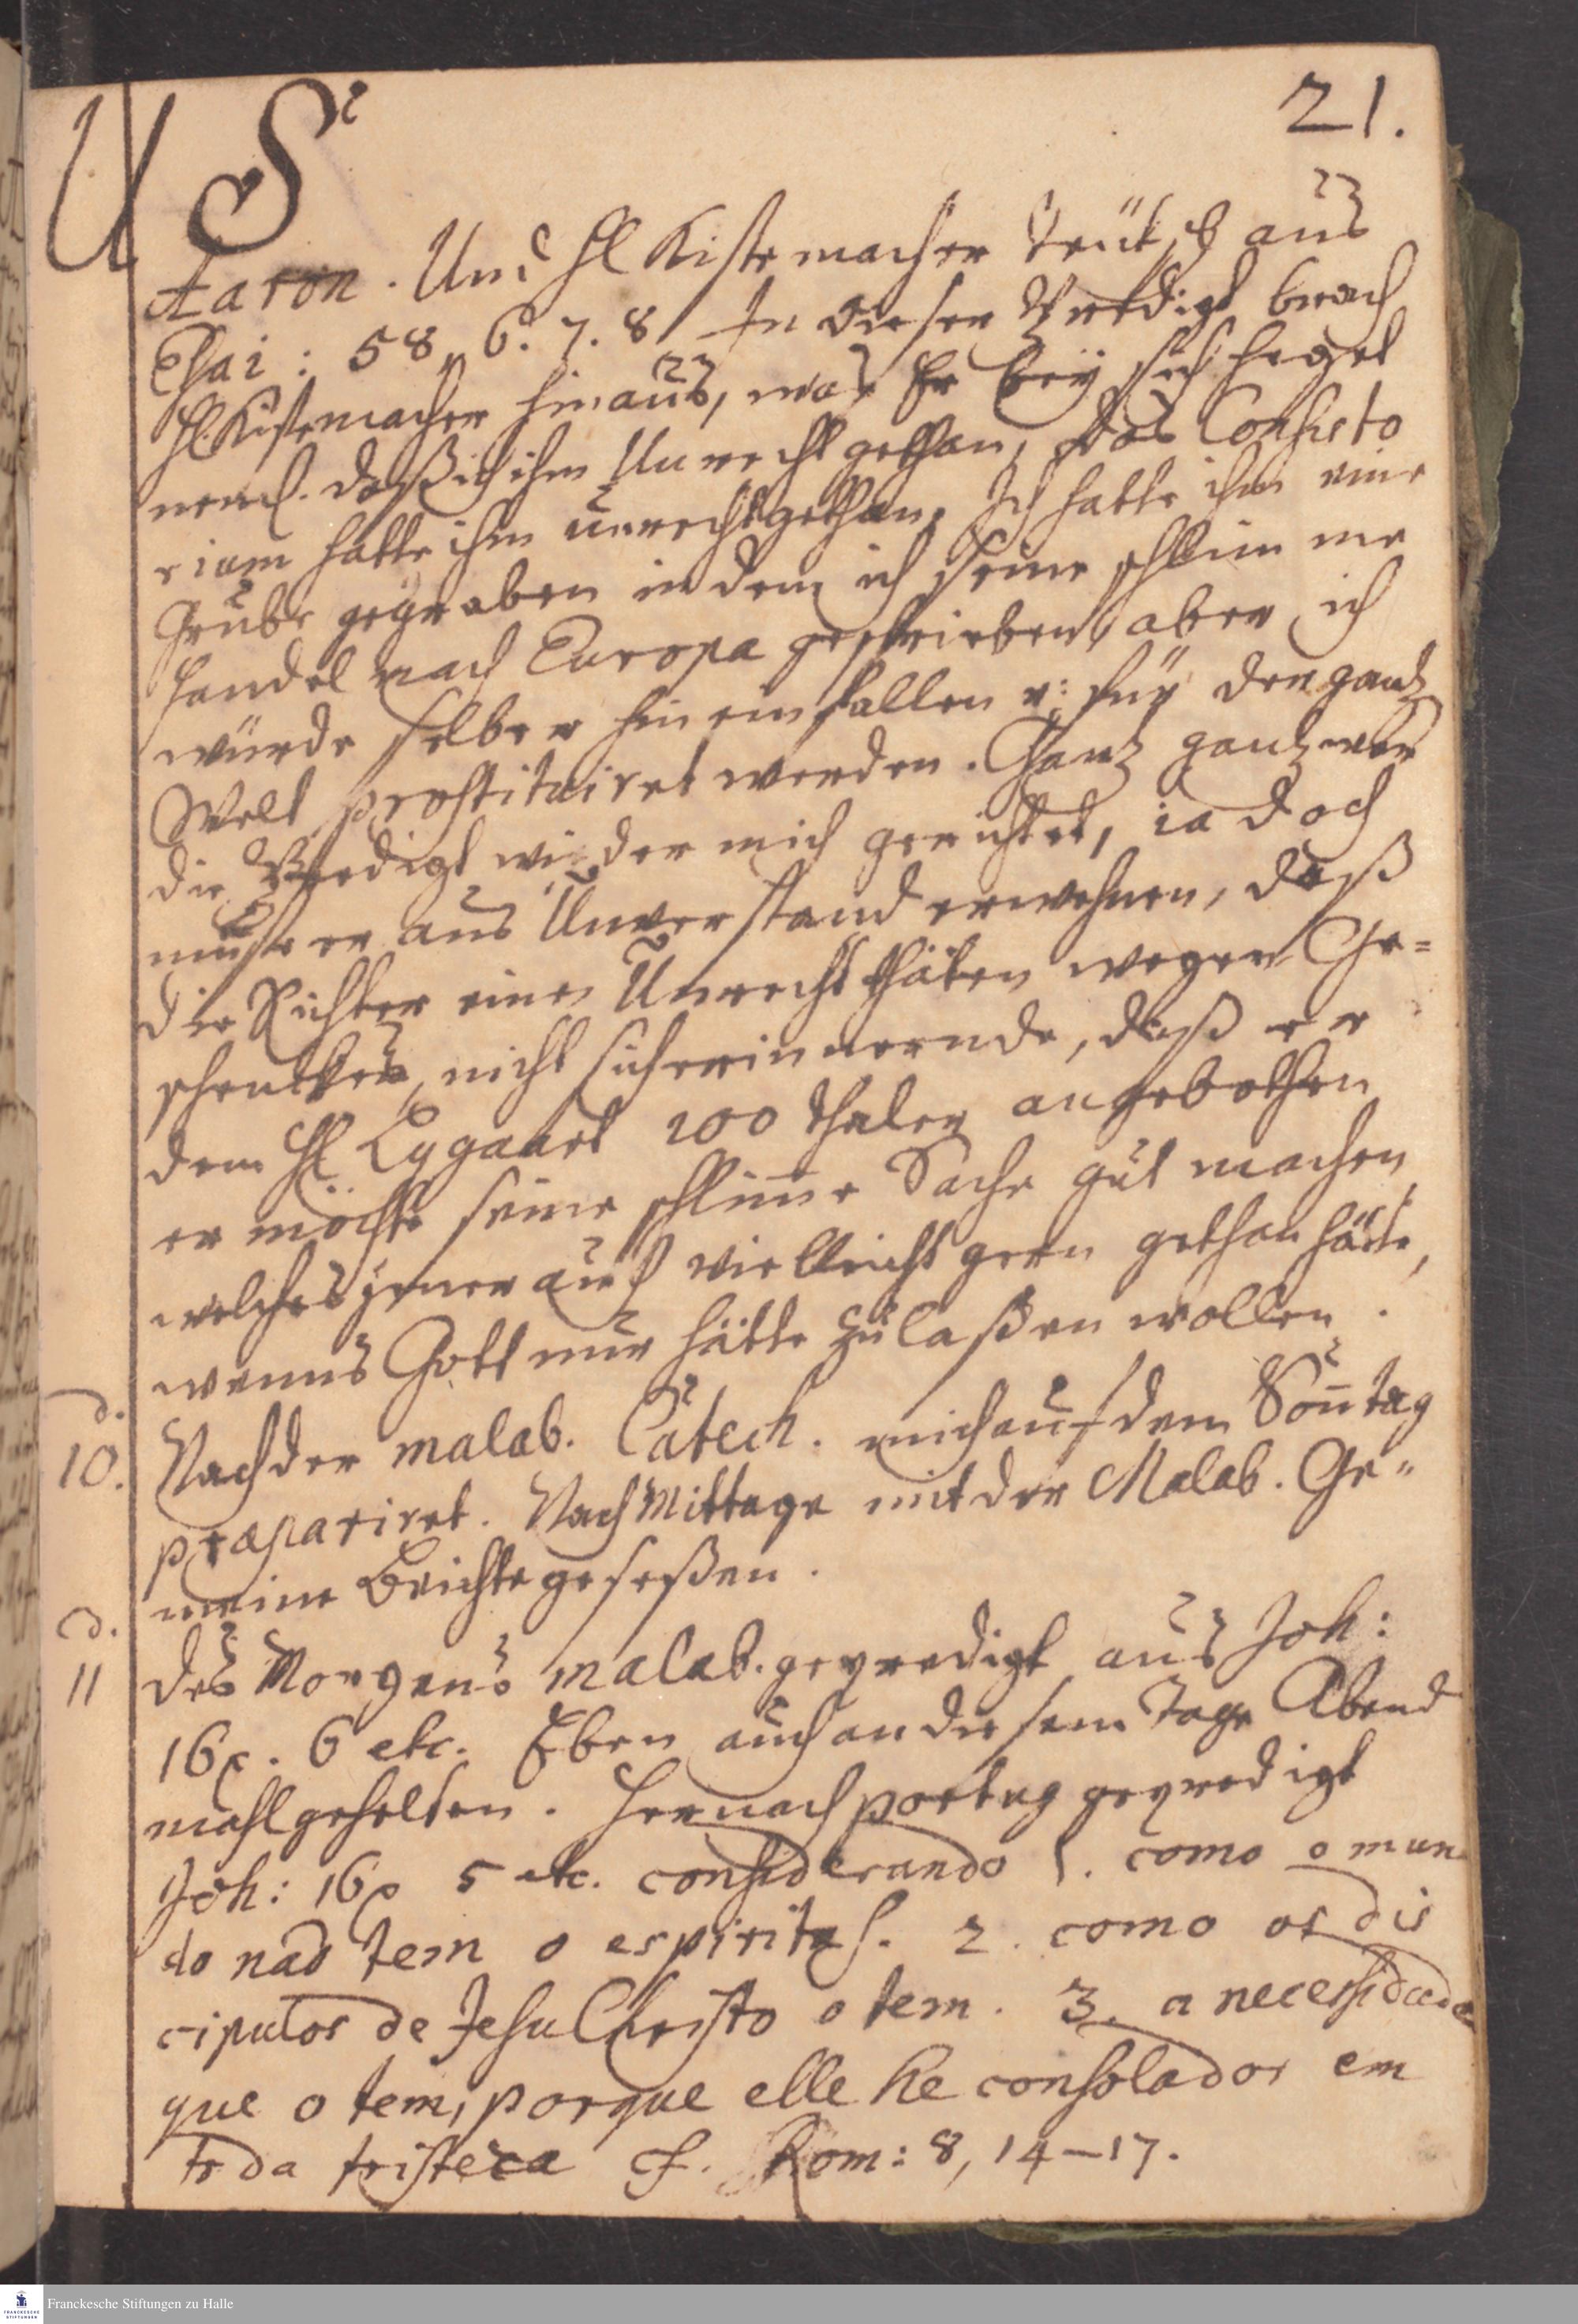 21.
U S
Aaron. Und H. Kistemacher Teütsch aus
Esai: 58, 6. 7. 8. In dieser Predigt brach
H. Kistemacher hinaus, was Er beÿ sich heget
neml. daß ich ihm Unrecht gethan, das Consisto
rium hatte ihm unrecht gethan. Ich hatte ihm eine
Grube gegraben indem ich seine schlimme
Handel nach Europa geschrieben, aber ich
würde selber hineinfallen u: für der gantz
Welt prostituiret werden. Gantz gantz war
die Predigt wieder mich gerichtet, ia doch
muste er aus Unverstand erwehnen, daß
die Richter einen Unrecht thäten wegen Ge=
schenckes, nicht sich erinnernde, daß er
dem H. Lygaart 200 thaler angebothen
er möchte seine schlimme Sache gut machen,
welches jener auch vielleicht gern gethan hätte,
wenns Gott nur hätte zulaßen wollen.
d.
10. Nach der malab. Catech. mich auf den Sontag
præpariret. Nach Mittage mit der Malab. Ge=
meine Beichte geseßen.
d.
11 Des Morgens malab. geprediget aus Joh:
16,. 6 etc. Eben auch an diesem Tage Abend
mahl gehalten. Hernach portug geprediget
Joh: 16, 5 etc. considerando 1. como o mun
do naõ tem o espirito S. 2. como os dis
cipulos de Jesu Christo o tem. 3. a necessidade
que o tem, porque elle he consolador em
toda tristeza cf. Rom: 8, 14–17.
Franckesche Stiftungen zu Halle